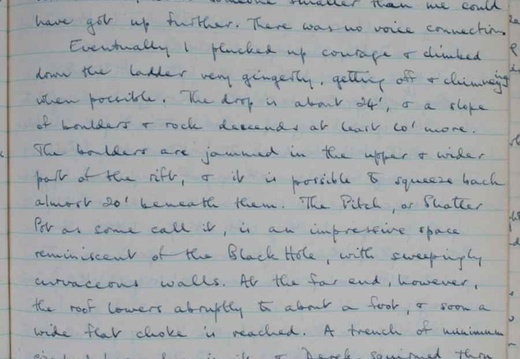 someone smaller than me could
have got up further. There was no voice connection.
Eventually I plucked up courage & climbed
down the ladder very gingerly, getting off & chimneying
when possible. The drop is about 24', & a slope
of boulders & rock descends at least 60' more.
The boulders are jammed in the upper & wider
part of the rift, & it is possible to squeeze back
almost 20' beneath them. The Pitch, or Shatter
Pot as some call it, is an impressive space
reminiscent of the Black Hole, with sweepingly
curvaceous walls. At the far end, however,
the roof lowers abruptly to about a foot, & soon a
wide flat choke is reached. A trench of minimum
& Derek squirmed